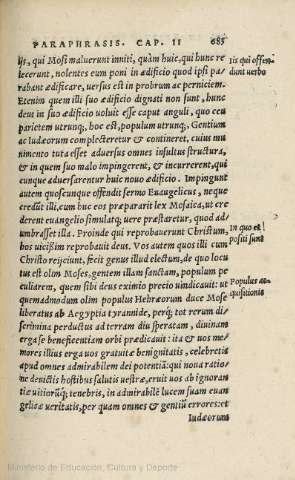 PARAPHRASIS. CAP. II 685
ijs, qui Mosi maluerunt inniti, quàm huic, qui hunc re
iecerunt, nolentes eum poni in ædificio quod ipsi pa-
rabant ædificare, uersus est in probrum ac perniciem.
Etenim quem illi suo ædificio dignati non sunt, hunc
deus in suo ædificio uoluit esse caput anguli, quo ceu
parietem utrunq;, hoc est, populum utrunq;, Gentium
ac Iudæorum complecteretur & contineret, cuius mu
nimento tuta esset aduersus omnes insultus structura,
& in quem suo malo impingerent, & incurrerent, qui
cunque aduersarentur huic nouo ædificio. Impingunt
autem quoscunque offendit sermo Euangelicus, neque
credūt illi, cum huc eos præparârit lex Mosaica, ut cre
derent euangelio simulatq; uere præstaretur, quod ad-
umbrasset illa. Proinde qui reprobauerunt Christum,
hos uicißim reprobauit deus. Vos autem quos illi cum
Christo reijciunt, fecit genus illud electum, de quo locu
tus est olim Moses, gentem illam sanctam, populum pe
culiarem, quem sibi deus eximio precio uindicauit: ut
quemadmodum olim populus Hebræorum duce Mose
liberatus ab Aegyptia tyrannide, perq; tot rerum di-
scrimina perductus ad terram diu speratam, diuinam
erga se beneficentiam orbi prædicauit: ita & uos me-
mores illius erga uos gratuitæ benignitatis, celebretis
apud omnes admirabilem dei potentiā: qui noua ratio-
ne deuictis hostibus salutis uestræ, eruit uos ab ignoran
tiæ uitiorūq; tenebris, in admirabilē lucem suam euan
gelicæ ueritatis, per quam omnes & gentiū errores: et
Iudæorum
Iis qui offen
dunt uerbo
In quo et
positi sunt
Populus ac-
quisitionis
Ministerio de Educación, Cultura y Deporte